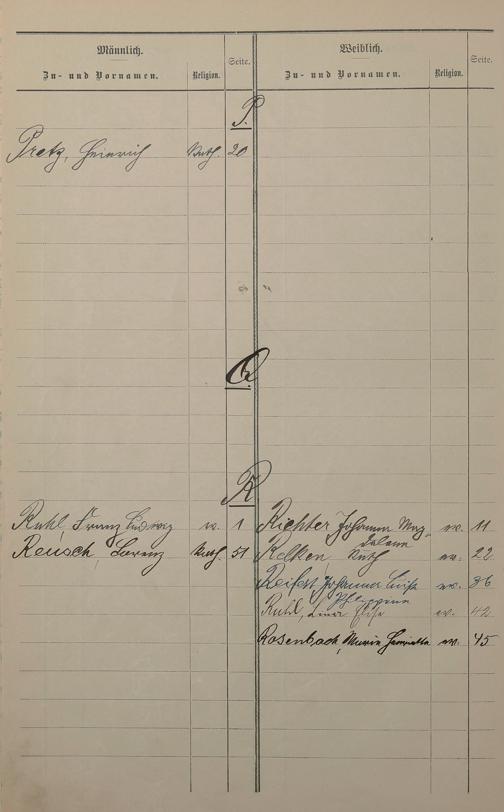 Männlich.
Zu- und Vornamen. Religion. Seite.
Weiblich.
Zu- und Vornamen. Religion. Seite.
P.
Pretz, Heinrich Kath. 20
Q.
R.
Ruhl, Franz Ludwig ev. 1
Richter Johanna Mag- ev. 11
dalena
Reusch, Lorenz Kath. 51
Ruth ev. 22
Johanna Luise ev. 36
Philippine
Ruhl, Lina Elise ev. 42
Rosenbach, Maria Henriette ev. 45